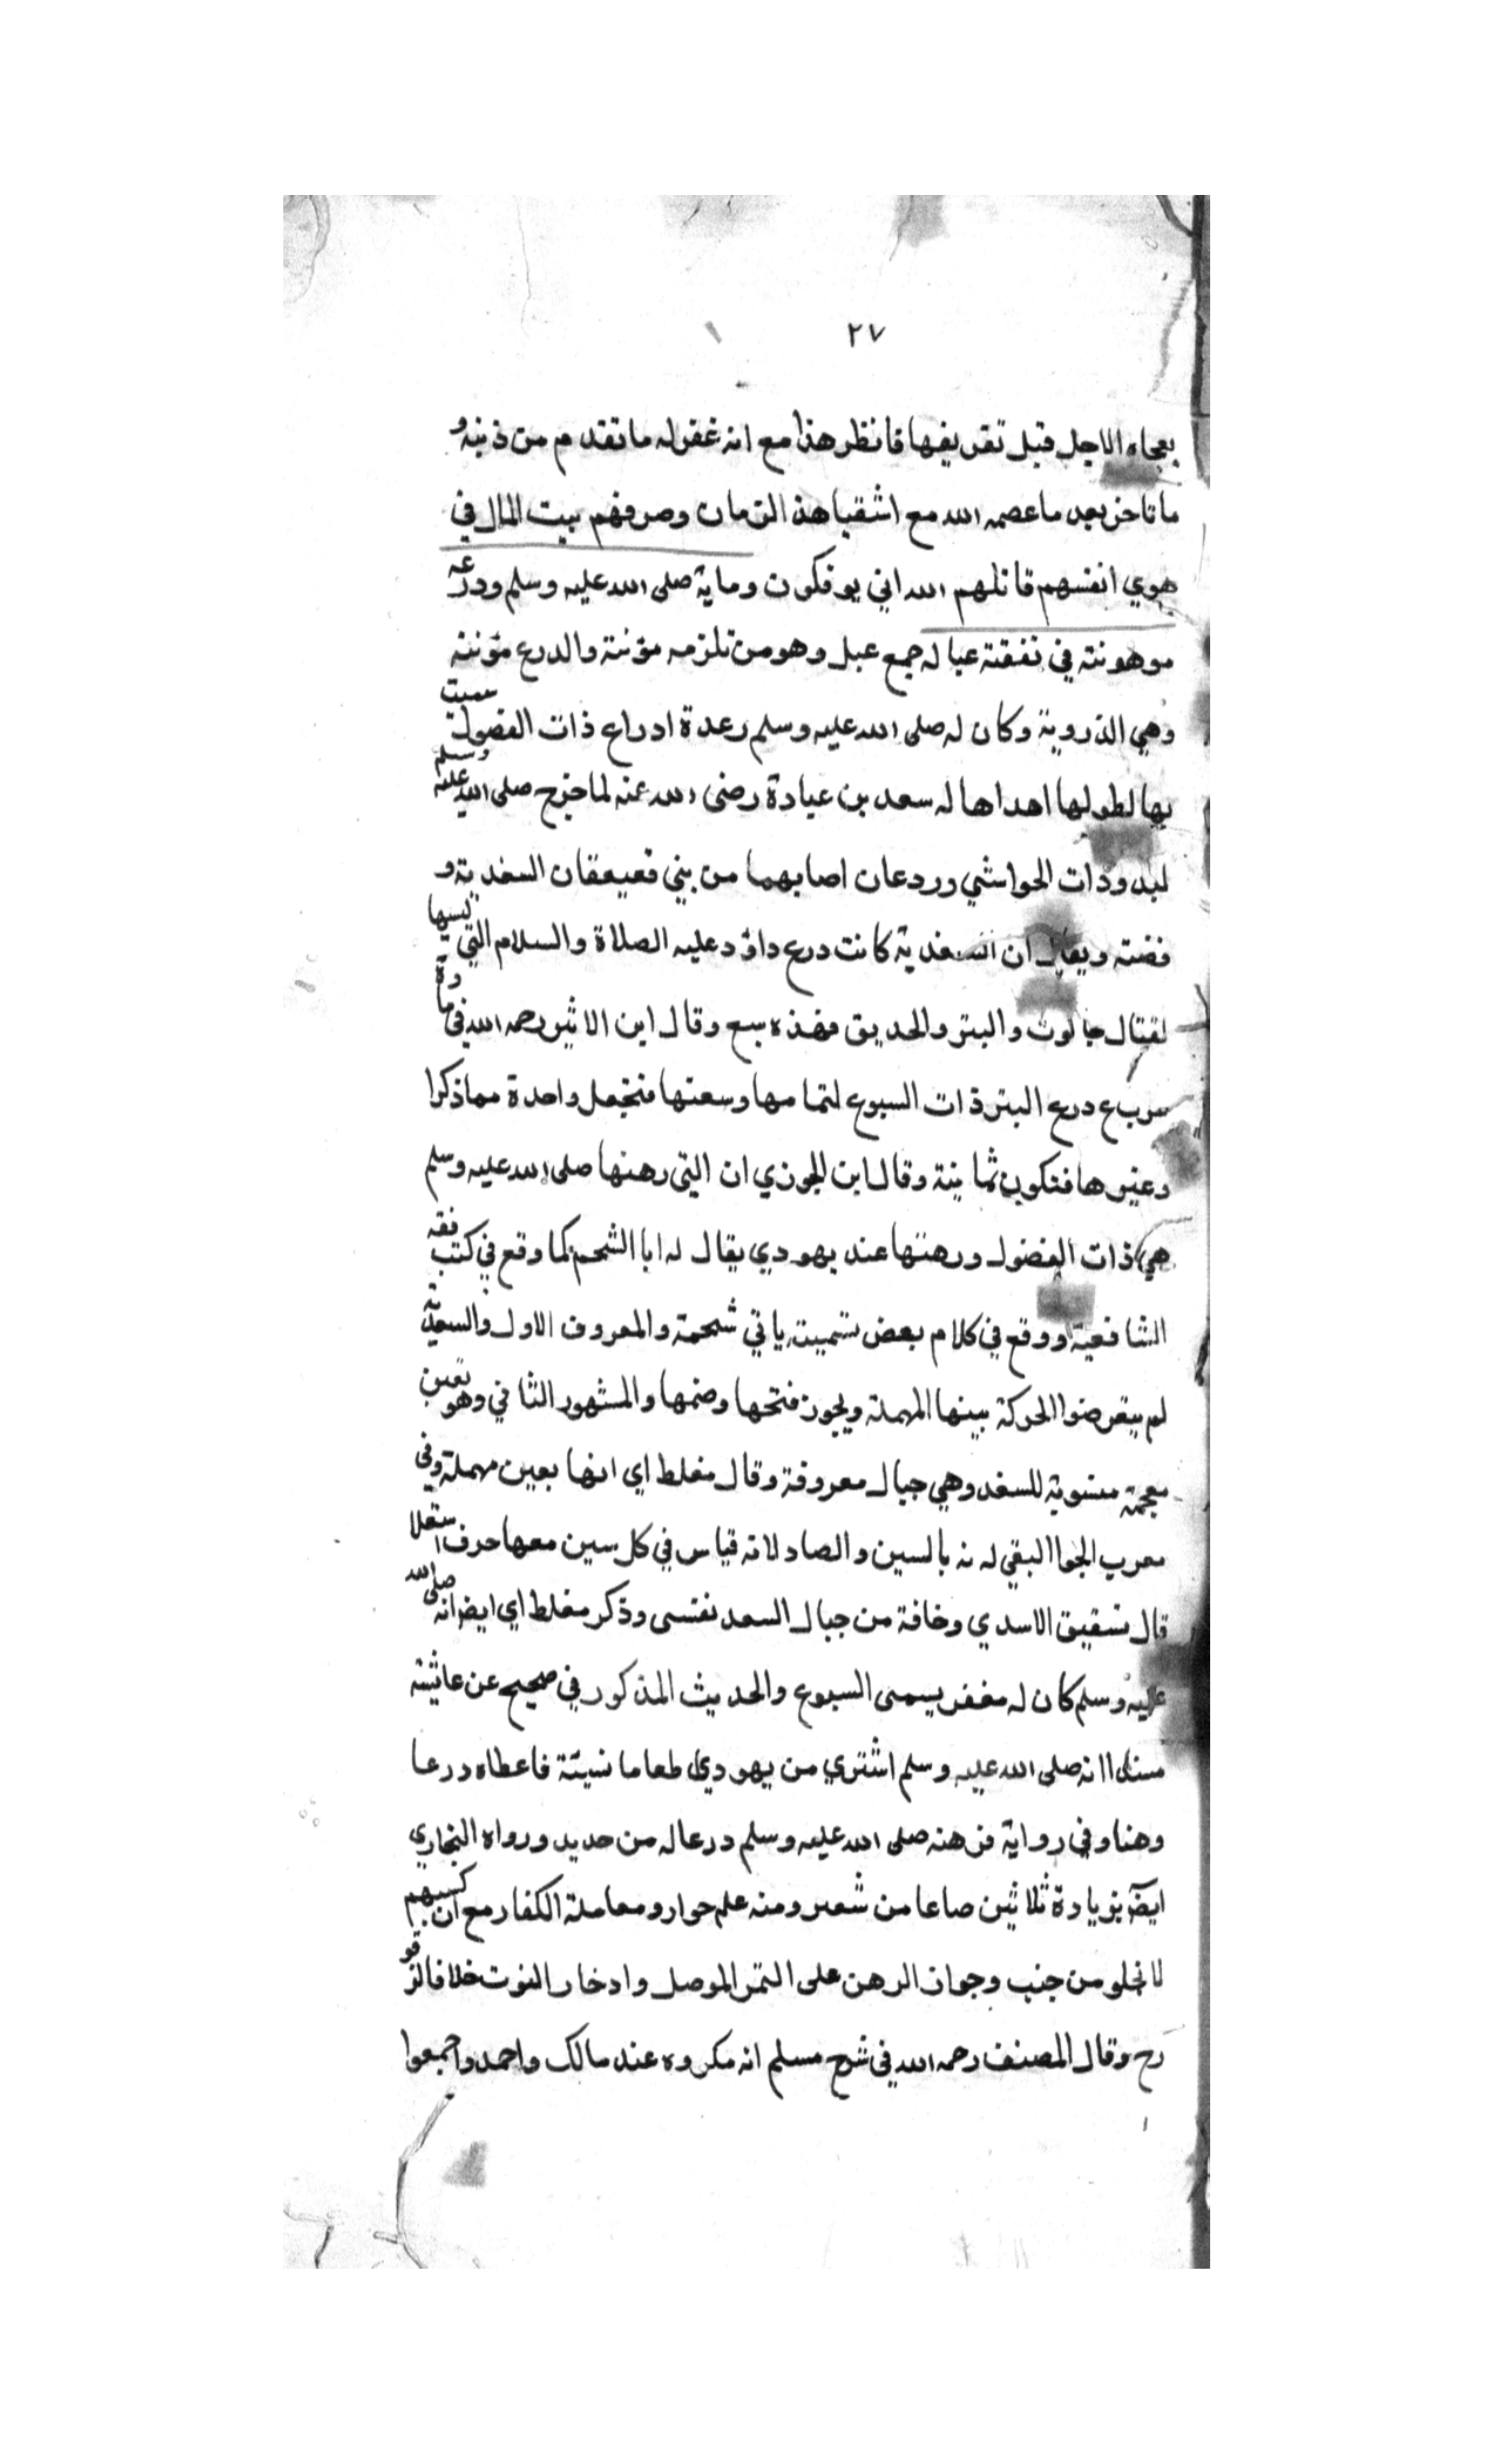 ٢٧
يعجاه الاجل قبل تفريفها فانظر هذا مع انه غفر له ما تقدم من ذنبه و
ما تاخر بعد ما عصمه الله مع اشقيا هذا الزمان وصرفهم بيت المال في
هوي انفسهم قاتلهم الله اني يوفكون وماية صلى الله عليه وسلم ودرعه
موهونة في نفقة عياله جمع عيل وهو من تلزمه مؤنته والدرع مؤنثة
وهي الذروية وكان له صلى الله عليه وسلم عدة ادراع ذات الفضول سميت
بها لطولها اهداها له سعد بن عبادة رضى الله عنه لما خرج صلى الله عليه وسلم
لبدر وذات الحواشي ودرعان اصابهما من بني قعيقعان السغدية و
فضة ويقال ان السغدية كانت درع داؤد عليه الصلاة والسلام التي لبسها
لقتال جالوت والبتر والحديق فهذه سبع وقال ابن الاثير رحمه الله في مادة
سربع درع البتر ذات السبوع لتمامها وسعتها فتجعل واحدة مما ذكرا
وغيرها فتكون ثمانية وقال ابن الجوزي ان التي رهنها صلى الله عليه وسلم
هي ذات الفضول ورهنها عند يهودي يقال له ابا الشحم كما وقع في كتب فقه
الشافعية ووقع في كلام بعض تسميته يابي شحمة والمعروف الاول والسعدية
لم يتعرضوا الحركة سينها المهملة ويجوز فتحها وضمها والمشهور الثاني وهو بغين
معجمة منسوبة للسغد وهي جبال معروفة وقال مغلطاي انها بعين مهملة وفي
معرب الجوااليقي له نه بالسين والصاد لانه قياس في كل سين معها حرف استعلا
قال شقيق الاسدي وخافة من جبال السعد نفسى وذكر مغلطاي ايضا انه صلى الله
عليه وسلم كان له مغفر يسمى السبوع والحديث المذكور في صحيح عن عائشة
انه صلى الله عليه وسلم اشتري من يهودي طعاما نسيئة فاعطاه درعا
وهنا وفي رواية فرهنه صلى الله عليه وسلم درعا له من حديد ورواه البخاري
ايضا بزيادة ثلاثين صاعا من شعير ومنه علم جواز ومعاملة الكفار مع ان كسبهم
لا تخلو من جنب وجواز الرهن على الثمن الموصل وادخار القوت خلافا لزقو
رح وقال المصنف رحمه الله في شرح مسلم انه مكروه عند مالك واحمد واجمعوا